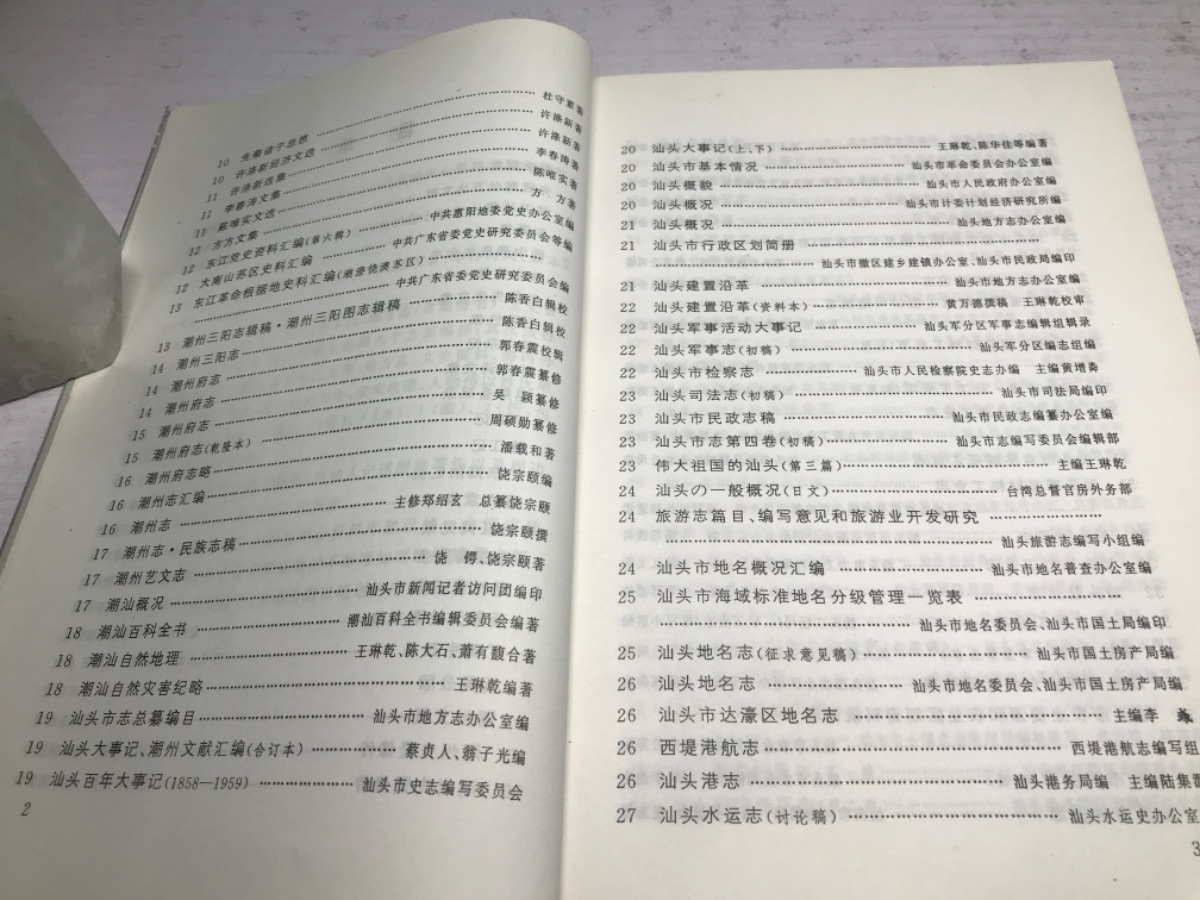 10 先秦诸子思想 杜守素著
10 许涤新经济文选 许涤新著
11 许涤新选集 许涤新著
11 李春涛文集 李春涛著
11 陈唯实文选 陈唯实著
12 方方文集 方 方著
12 东江党史资料汇编(第六辑) 中共惠阳地委党史办公室编
12 大南山苏区史料汇编 中共广东省委党史研究委员会等编
13 东江革命根据地史料汇编(潮澄饶澳苏区)
中共广东省委党史研究委员会编
13 潮州三阳志辑稿·潮州三阳图志辑稿 陈香白辑校
14 潮州三阳志 陈香白辑校
14 潮州府志 郭春震校辑
14 潮州府志 郭春震纂修
15 潮州府志 吴 颖纂修
15 潮州府志(乾隆本) 周硕勋纂修
16 潮州府志略 潘载和著
16 潮州志汇编 饶宗颐编
16 潮州志 主修郑绍玄 总纂饶宗颐
17 潮州志·民族志稿 饶宗颐撰
17 潮州艺文志 饶 锷、饶宗颐著
17 潮汕概况 汕头市新闻记者访问团编印
18 潮汕百科全书 潮汕百科全书编辑委员会编著
18 潮汕自然地理 王琳乾、陈大石、萧有馥合著
18 潮汕自然灾害纪略 王琳乾编著
19 汕头市志总纂编目 汕头市地方志办公室编
19 汕头大事记、潮州文献汇编(合订本) 蔡贞人、翁子光编
19 汕头百年大事记(1858—1959) 汕头市史志编写委员会
2
20 汕头大事记(上、下) 王琳乾、陈华佳等编著
20 汕头市基本情况 汕头市革命委员会办公室编
20 汕头概貌 汕头市人民政府办公室编
20 汕头概况 汕头市计委计划经济研究所编
21 汕头概况 汕头地方志办公室编
21 汕头市行政区划简册
汕头市撤区建乡建镇办公室、汕头市民政局编印
21 汕头建置沿革 汕头市地方志办公室编
22 汕头建置沿革(资料本) 黄万德撰稿 王琳乾校审
22 汕头军事活动大事记 汕头军分区军事志编辑组辑录
22 汕头军事志(初稿) 汕头军分区编志组编
22 汕头市检察志 汕头市人民检察院史志办编 主编黄增粦
23 汕头司法志(初稿) 汕头市司法局编印
23 汕头市民政志稿 汕头市民政志编纂办公室编
23 汕头市志第四卷(初稿) 汕头市志编写委员会编辑部
23 伟大祖国的汕头(第三篇) 主编王琳乾
24 汕头の一般概况(日文) 台湾总督官房外务部
24 旅游志篇目、编写意见和旅游业开发研究
汕头旅游志编写小组编
24 汕头市地名概况汇编 汕头市地名普查办公室编
25 汕头市海域标准地名分级管理一览表
汕头市地名委员会、汕头市国土局编印
25 汕头地名志(征求意见稿) 汕头市国土房产局编
26 汕头地名志 汕头市地名委员会、汕头市国土房产局编
26 汕头市达濠区地名志 主编李
26 西堤港航志 西堤港航志编写组
26 汕头港志 汕头港务局编 主编陆集源
27 汕头水运志(讨论稿) 汕头水运史办公室
3